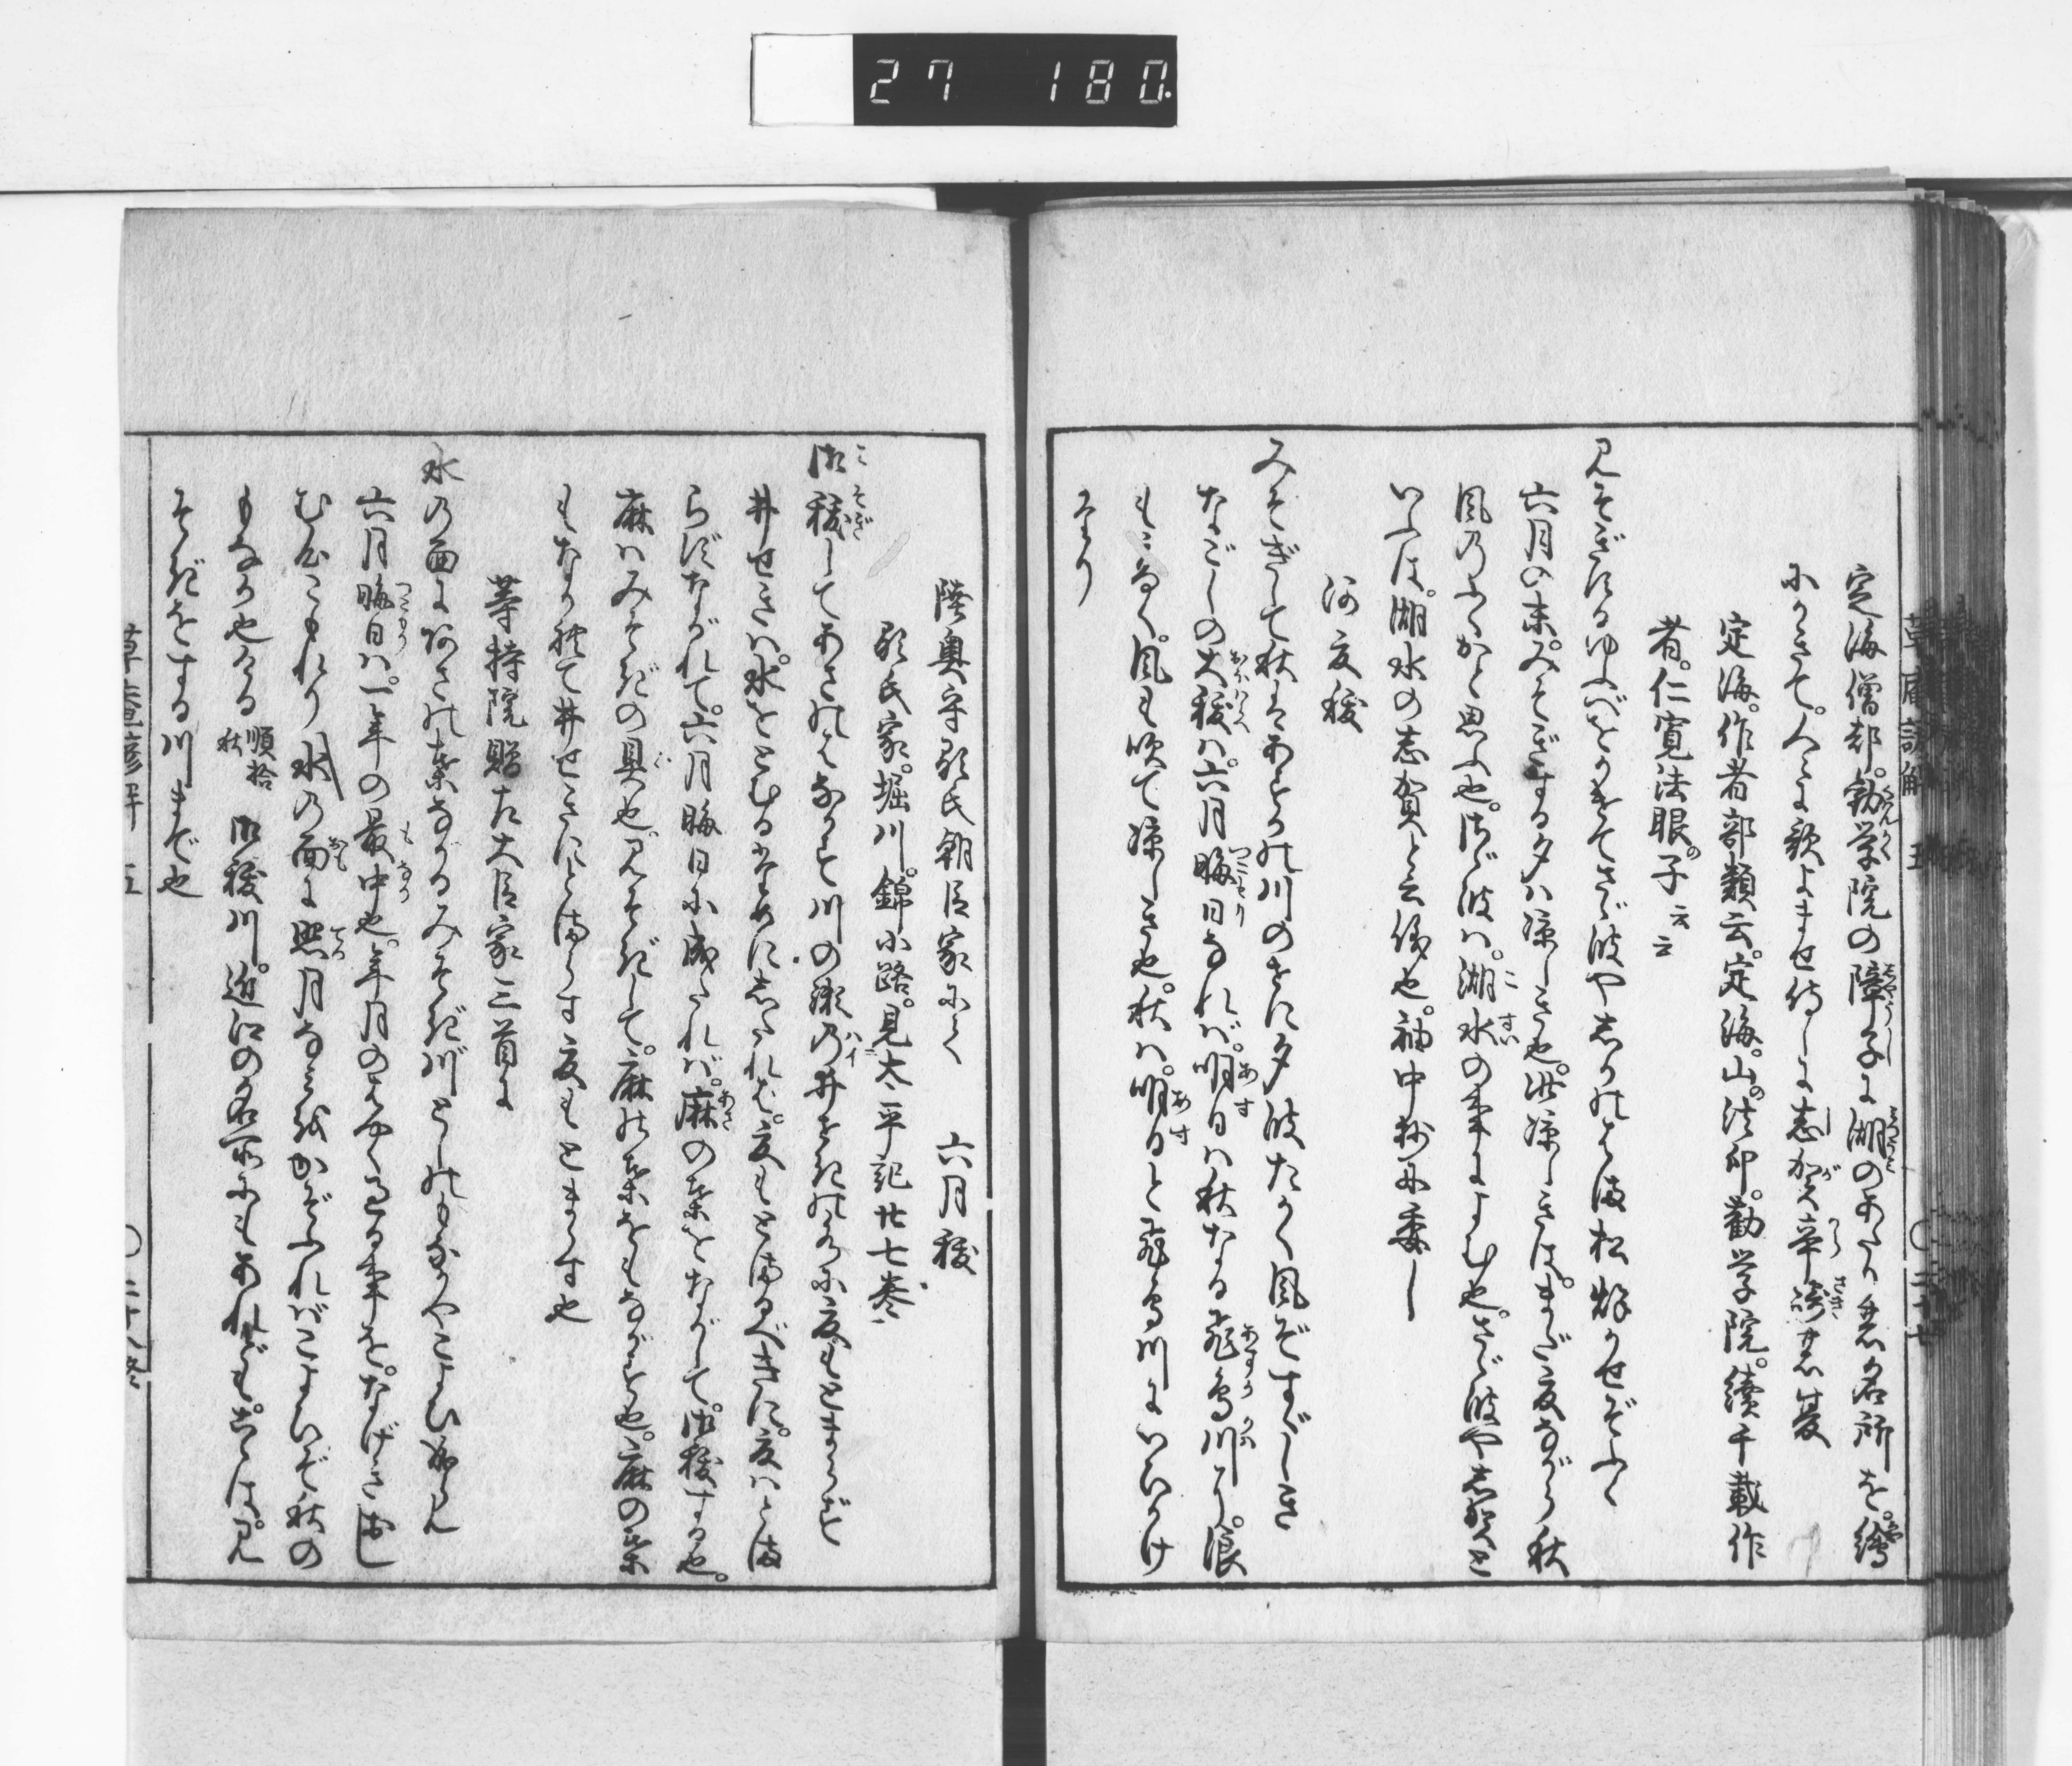 27 180
草庵諺解 五 ○二十七
定海僧都。勧学院の障子に湖のあたりの名所を。絵
にかきて。人々に歌よませ侍しに志賀辛崎の夏
定海。作者部類云。定海。山。法印。勧学院。続千載作
者。仁寛法眼の子云云
みそぎするゆふべをかけてさゞ波やしがのはま松秋かぜぞふく
六月の末。みそぎする夕は涼しき也。此涼しきは。まだ夏ながら秋
風のふくかと思ふ也。さゞ波は。湖水の事によむ也。さゞ波や志賀と
いふは。湖水の志賀と云儀也。袖中抄に委し
河夏祓
みそぎして秋をあすかの川のせに夕波たかく風ぞすゞしき
なごしの大祓は。六月晦日なれば。明日は秋なる飛鳥川に。浪
もたかく。風も吹て涼しき也。秋は。明日と飛鳥川にいひかけ
たり
陸奥守顕氏朝臣家にて 六月祓
顕氏家。堀川。錦小路。見太平記廿七巻
御祓してあさのはながす川の瀬の井せきのみに夏もとまらず
井せきは。水をとむるためにしたれば。夏もとまるべきに。夏はとま
らずながれて。六月晦日に成たれば。麻の葉をながして。御祓する也。
麻はみそぎの具也。みそぎして。麻の葉をもながす也。麻の葉
もながれて井せきにとまらず夏もとまらず也
等持院贈左大臣家三首に
水の面に
六月晦日は。一年の最中也。年月のはやく過る事を。なげきまし
水の面に照月なみをかぞふればこよひぞ秋の
もなか也ける 順拾秋 御祓川。近江の名所にもあれども。こゝは。み
そぎをする川まで也
草庵諺解 五